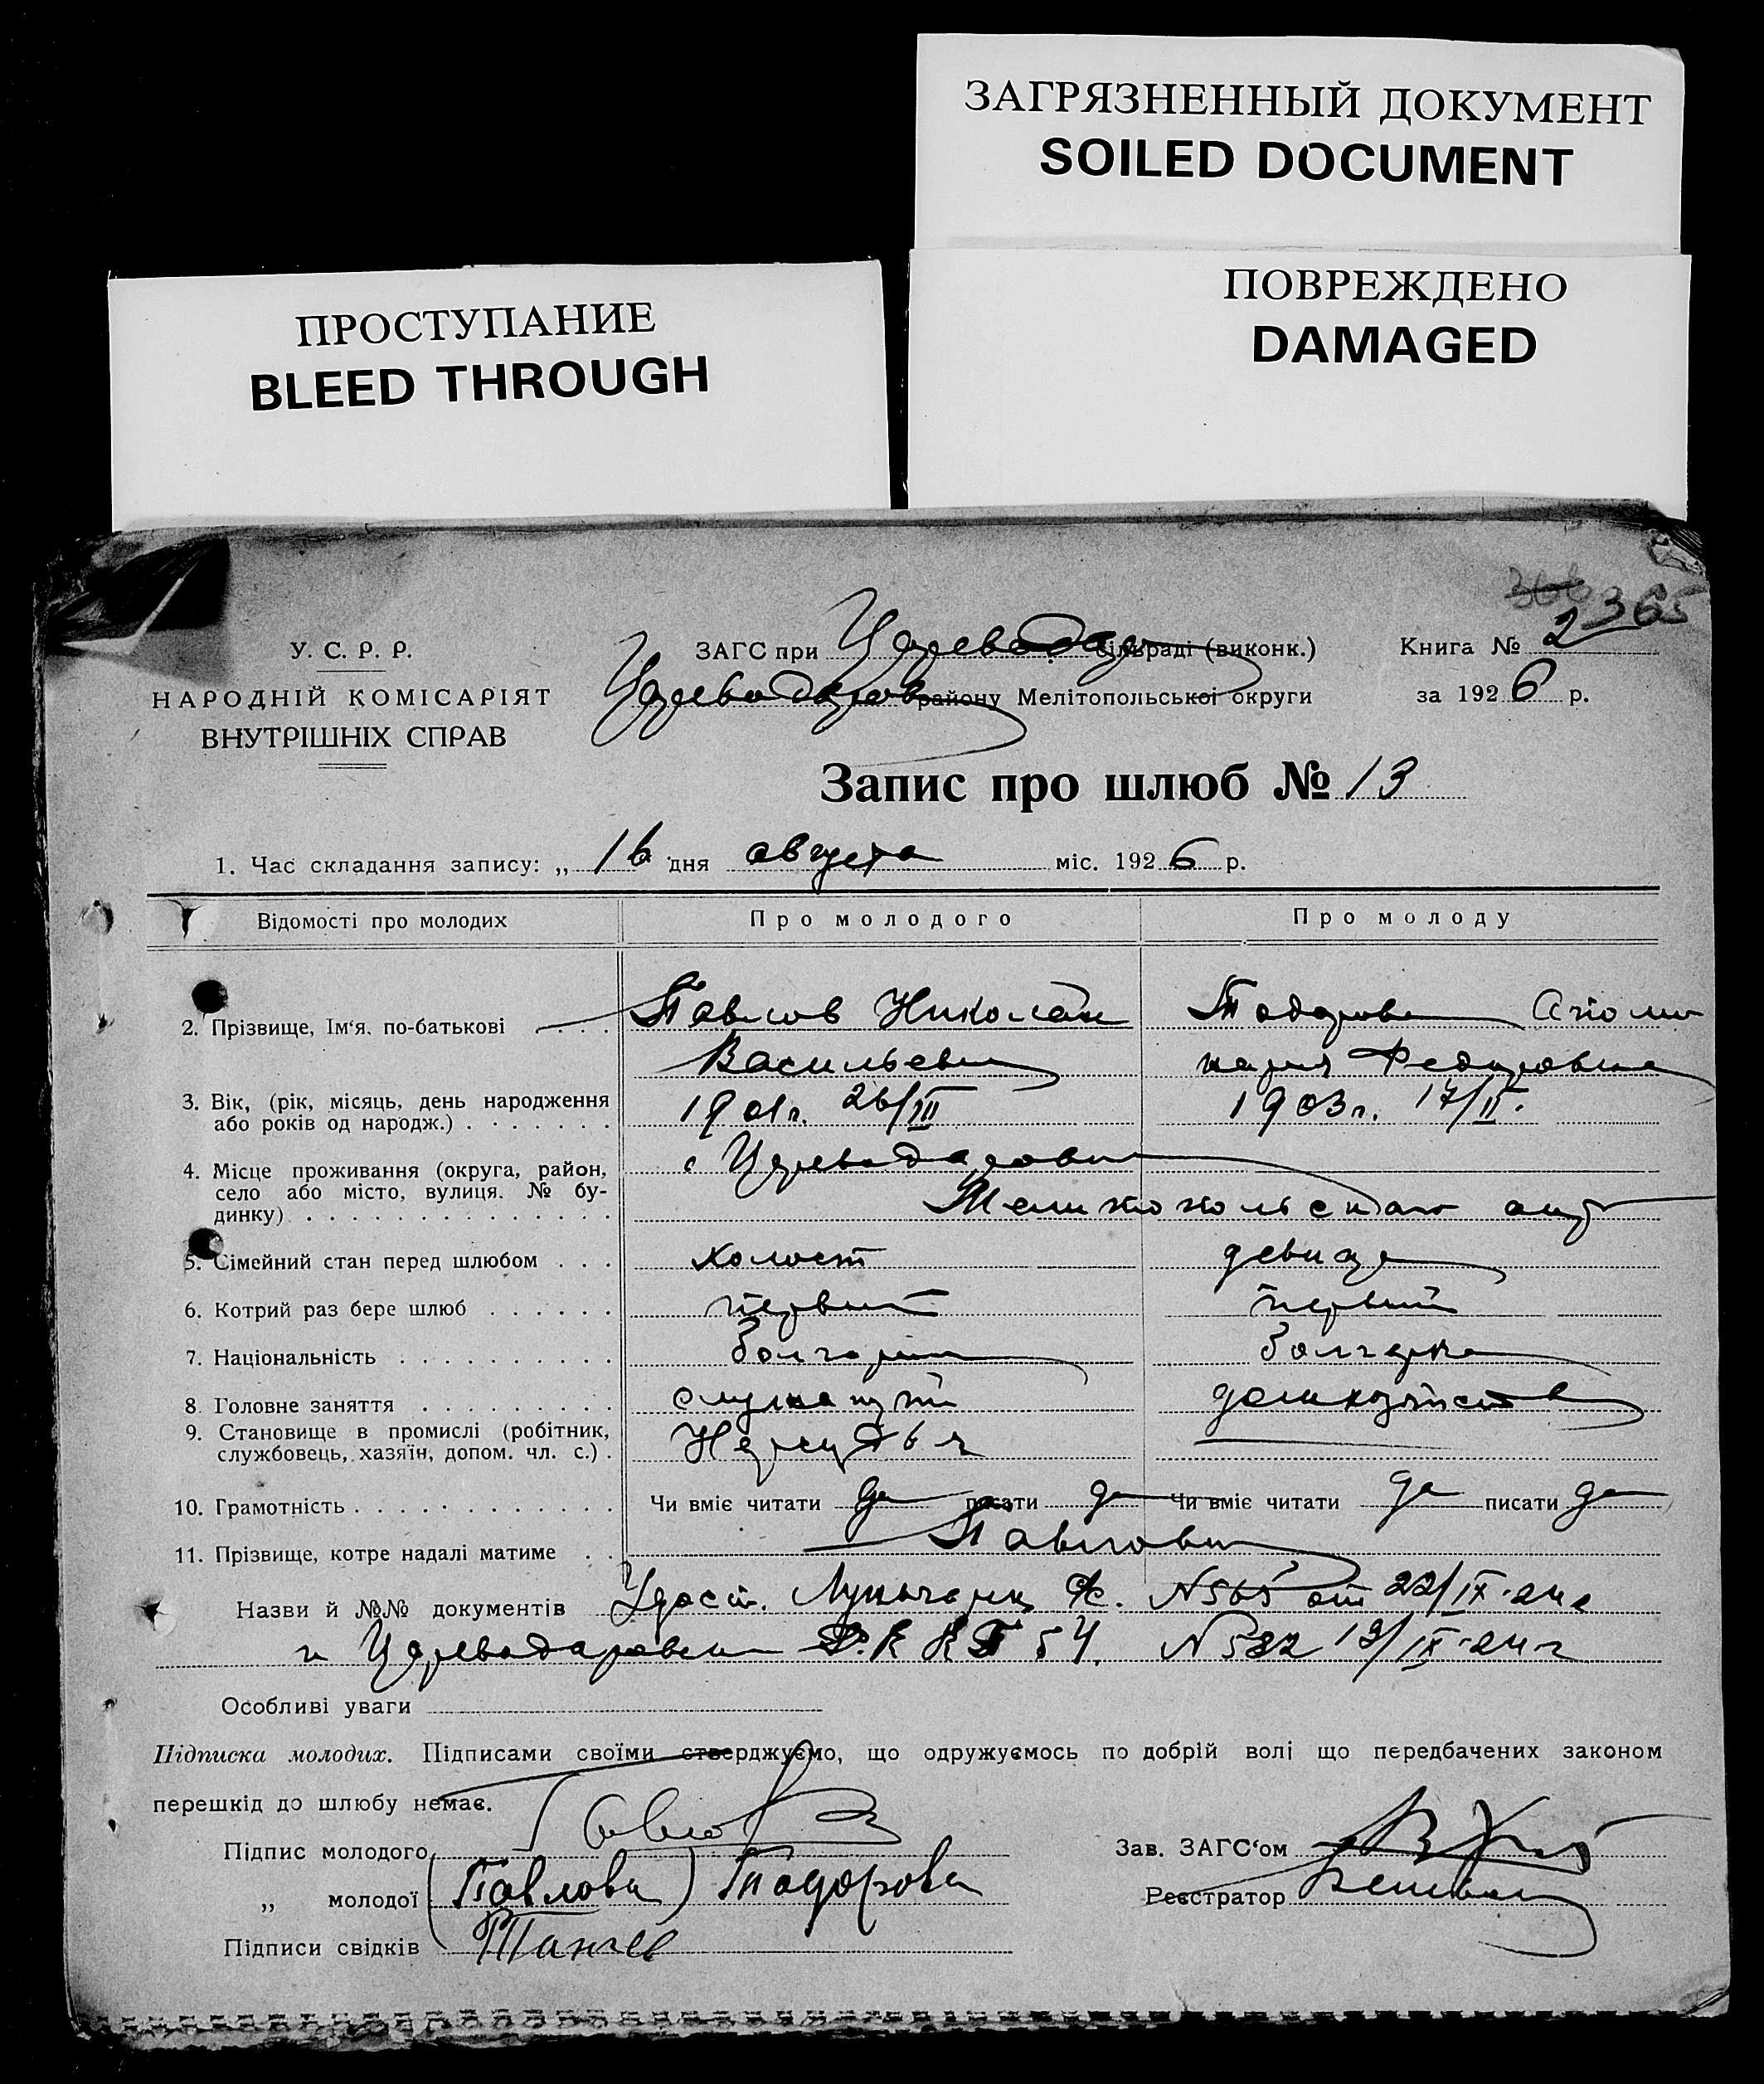 ЗАГРЯЗНЕННЫЙ ДОКУМЕНТ
SOILED DOCUMENT
ПРОСТУПАНИЕ
BLEED THROUGH
ПОВРЕЖДЕНО
DAMAGED
366 365
У. С. Р. Р.
НАРОДНІЙ КОМІСАРІЯТ
ВНУТРІШНІХ СПРАВ
ЗАГС при сільраді (виконк.)
Цареводаров району Мелітопольської округи
Книга № 2
за 1926 р.
Запис про шлюб № 13
1. Час складання запису: „ 16 дня августа міс. 1926 р.
Відомості про молодих Про молодого Про молоду
2. Прізвище, Ім'я, по-батькові Павлов Николай Тодорова Аполи
Васильевич нария Федоровна
3. Вік, (рік, місяць, день народження 1901 г. 26/III 1903 г. 17/II.
або років од народж.)
4. Місце проживання (округа, район, с Цареводаровка
село або місто, вулиця. № бу- Мелитопольского окр
динку)
5. Сімейний стан перед шлюбом холост девица
6. Котрий раз бере шлюб первый первый
7. Національність болгарин болгарка
8. Головне заняття служащий домхозяйство
9. Становище в промислі (робітник,
службовець, хазяїн, допом. чл. с.) Нарсудья
10. Грамотність Чи вміє читати да писати да Чи вміє читати да писати да
11. Прізвище, котре надалі матиме Павловы
Назви й №№ документів Удост. N 565 от 22/IX-24 г
и Цареводаровки N 582 12/IX-24 г
Особливі уваги
Підписка молодих. Підписами своїми стверджуємо, що одружуємось по добрій волі що передбачених законом
перешкід до шлюбу немає.
Підпис молодого Павлов
„ молодої (Павлова) Тодорова
Підписи свідків Танчев
Зав. ЗАГС'ом
Реєстратор